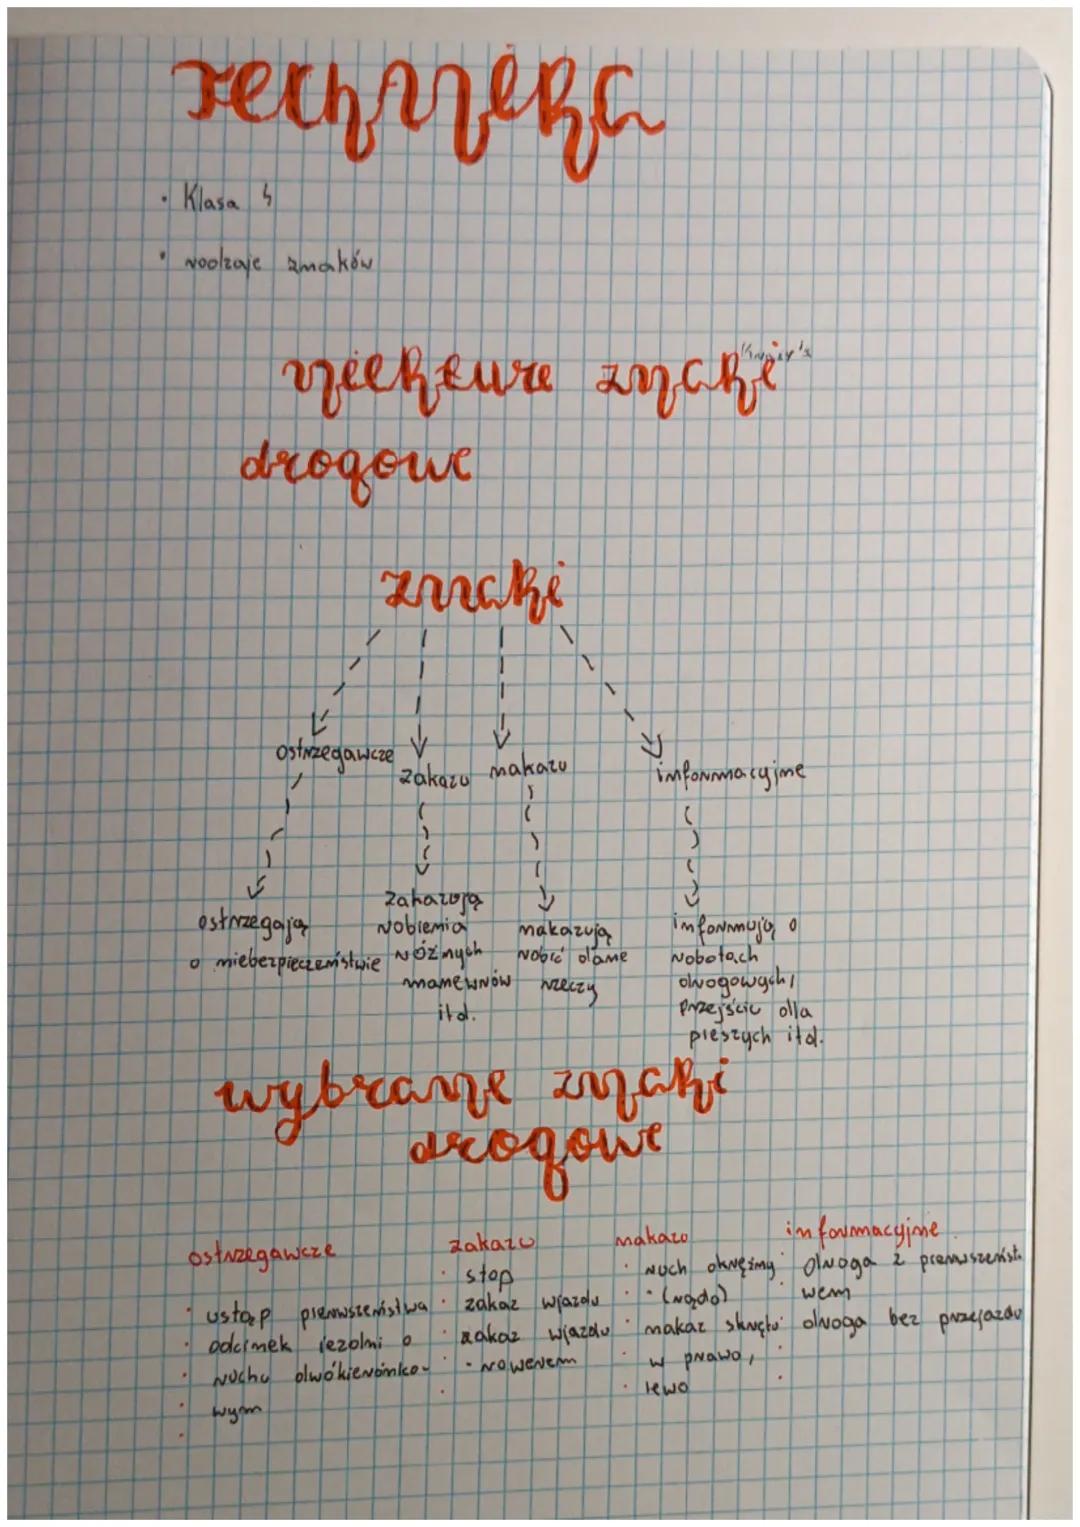 Technika
· Klasa 4
· rodzaje znaków
niekture znaki
drogowe
znaki
ostrzegawcze
zakazu
nakazu
informacyjne
ostrzegają
o niebezpieczeństwie
zakazują
robienia
różnych
manewrów
itd.
nakazują
robić dane
rzeczy
informują o
robotach
drogowych,
przejściu dla
pieszych itd.
wybrane znaki
drogowe
ostrzegawcze
· ustąp pierwszeństwa
· odcinek jezdni o
· ruchu dwókierónko-
· wym
·
zakazu
· stop
· zakaz wjazdu
· zakaz wjazdu
· - rowerem
·
nakazu
· ruch okrężny
· · (rądo)
· nakaz skrętu
· w prawo,
· lewo
informacyjne
· droga z pierwszeńst-
· wem
· droga bez przejazdu
·
·